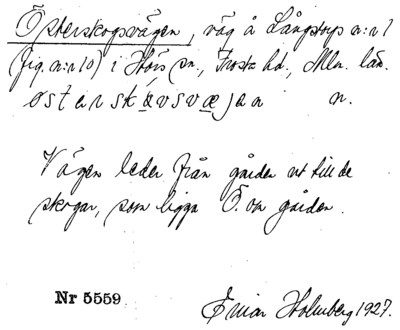 Österskogsvägen, väg å Långstorps n:r 1
(fig. n:r 10) i Hörs sn., Frosta hd., Mlm. län.
østerskåvsvæjen n.
Vägen leder från gården ut till de
skogar, som ligga Ö. om gården.
Nr 5559
Einar Holmberg 1927.